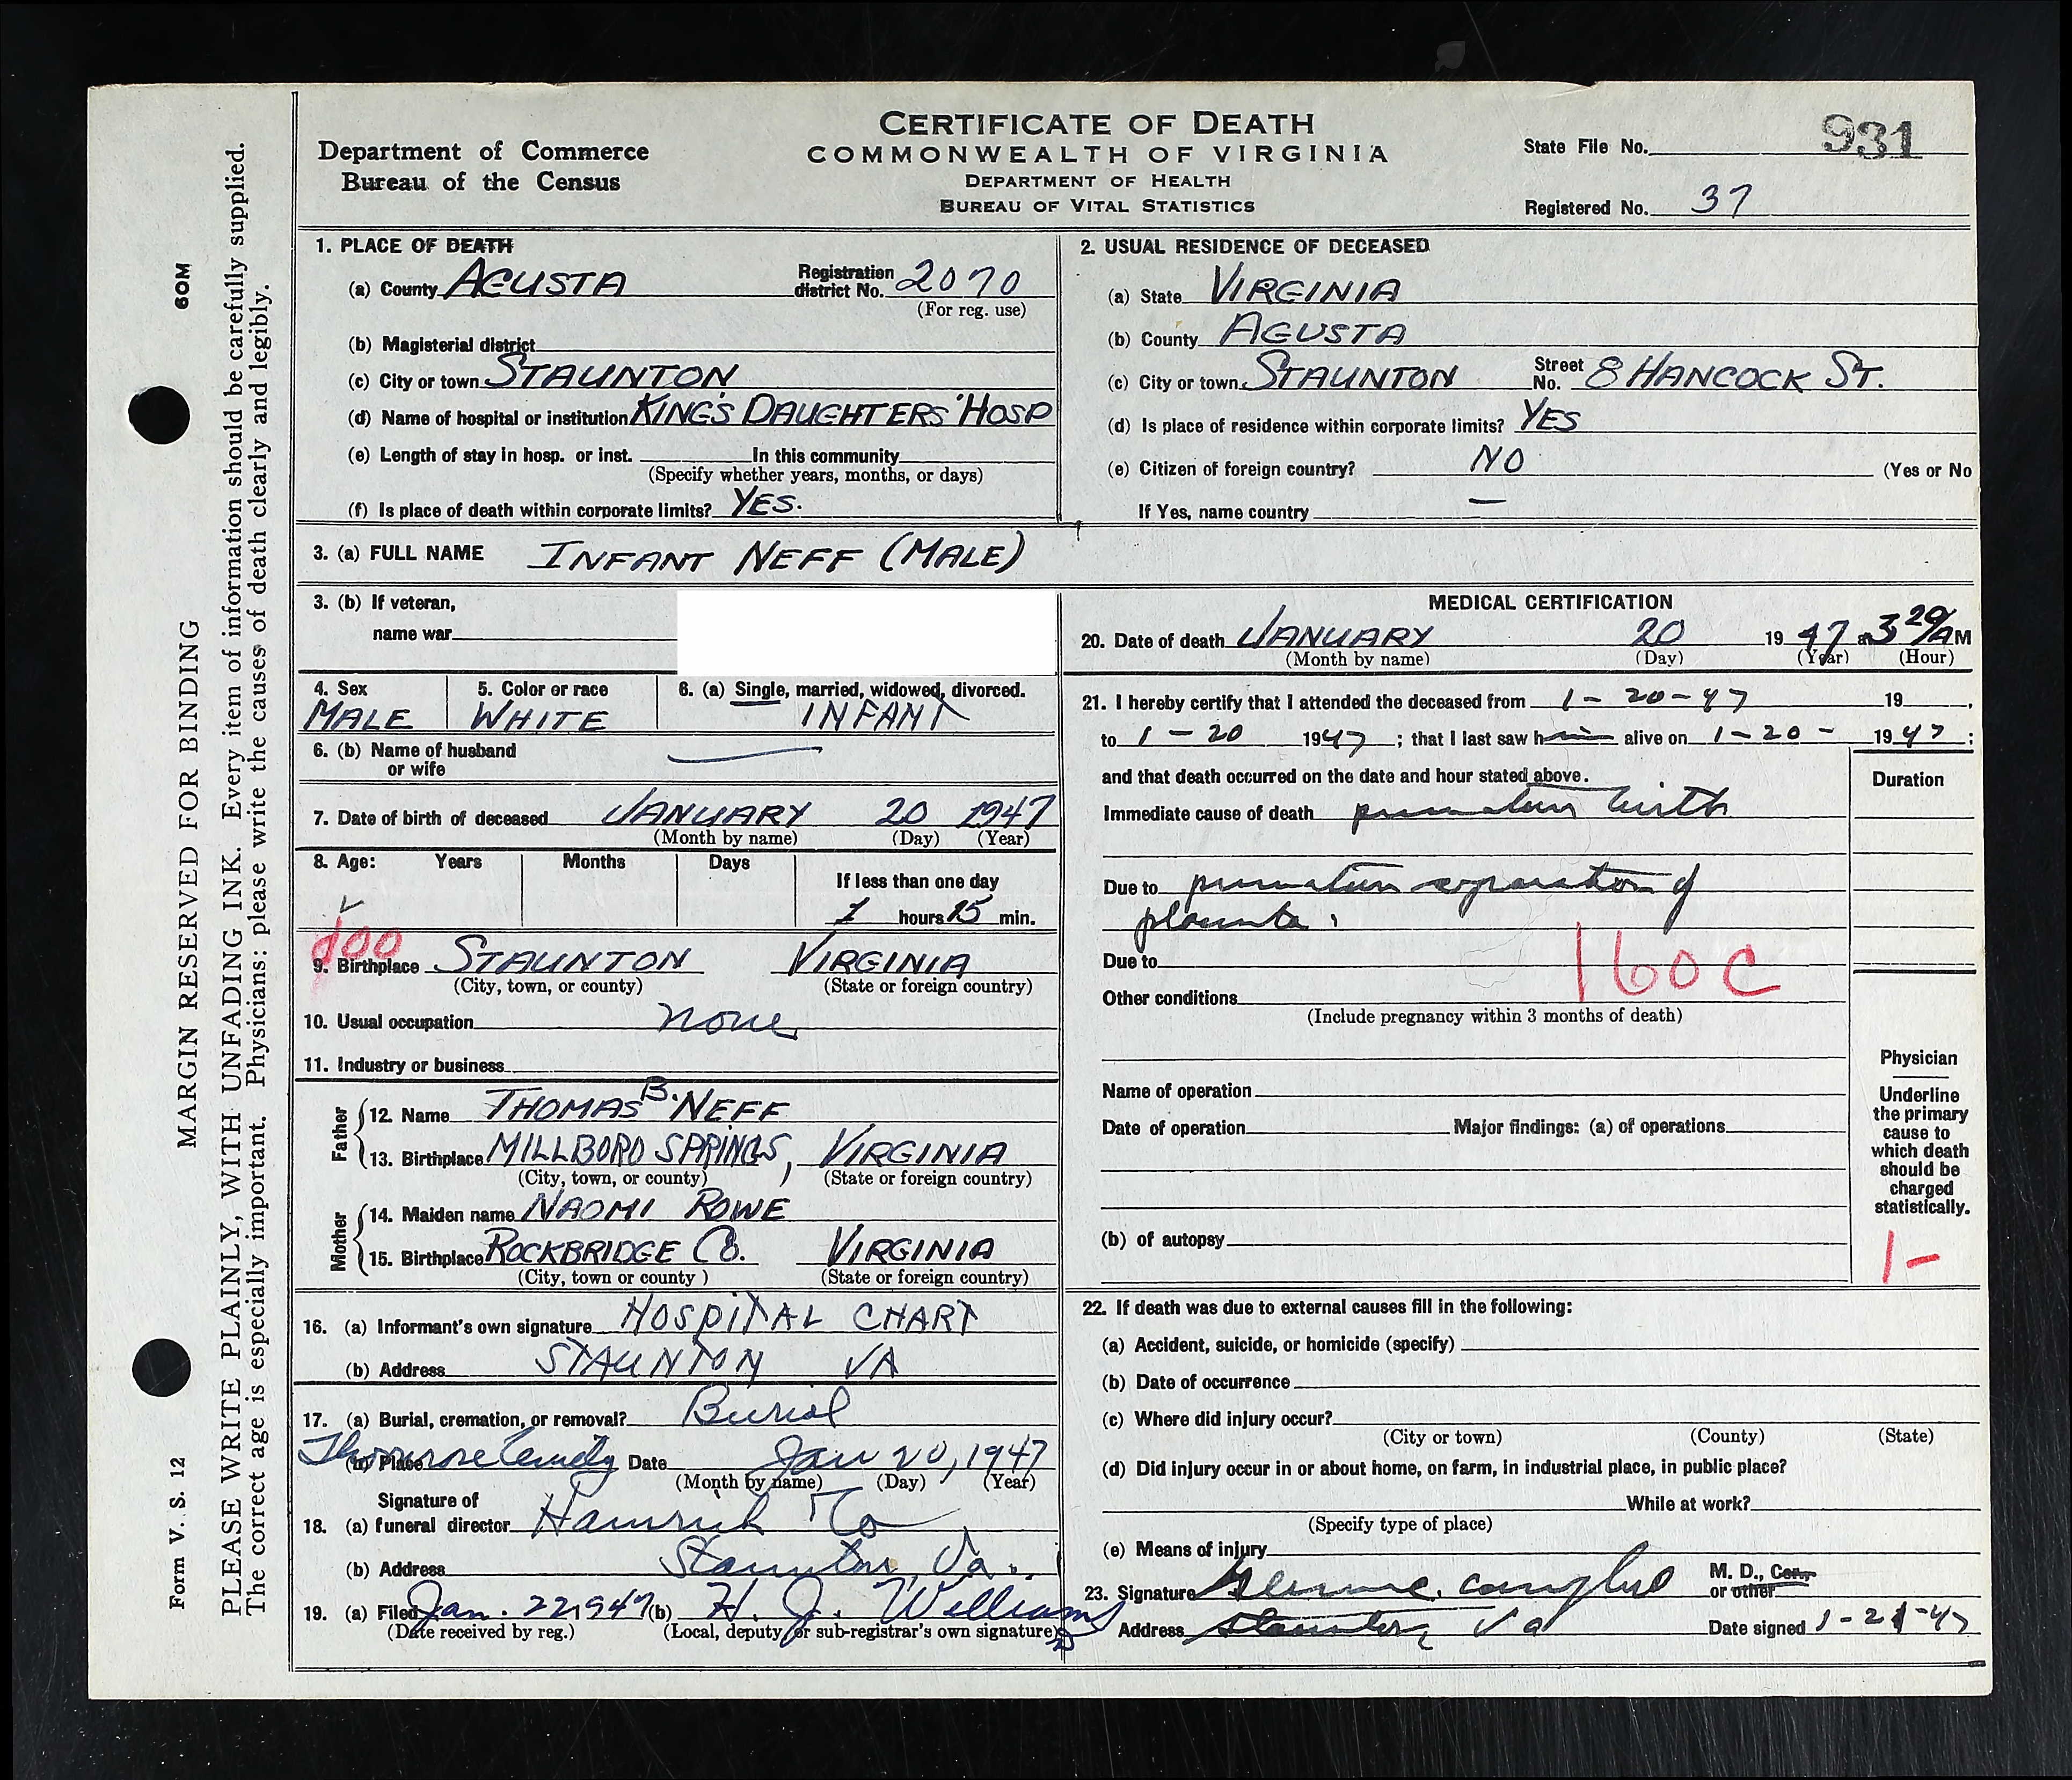 MARGIN RESERVED FOR BINDING
60M
Form V. S. 12
PLEASE WRITE PLAINLY, WITH UNFADING INK. Every item of information should be carefully supplied.
The correct age is especially important. Physicians: please write the causes of death clearly and legibly.
Department of Commerce
Bureau of the Census
CERTIFICATE OF DEATH
COMMONWEALTH OF VIRGINIA
DEPARTMENT OF HEALTH
BUREAU OF VITAL STATISTICS
State File No. 931
Registered No. 37
1. PLACE OF DEATH
(a) County AGUSTA Registration district No. 2070
(For reg. use)
(b) Magisterial district
(c) City or town STAUNTON
(d) Name of hospital or institution KING'S DAUGHTERS' HOSP
(e) Length of stay in hosp. or inst. In this community
(Specify whether years, months, or days)
(f) Is place of death within corporate limits? YES.
2. USUAL RESIDENCE OF DECEASED
(a) State VIRGINIA
(b) County AGUSTA
(c) City or town STAUNTON Street No. 8 HANCOCK ST.
(d) Is place of residence within corporate limits? YES
(e) Citizen of foreign country? NO (Yes or No
If Yes, name country —
3. (a) FULL NAME INFANT NEFF (MALE)
3. (b) If veteran,
name war
4. Sex 5. Color or race 6. (a) Single, married, widowed, divorced.
MALE WHITE INFANT
6. (b) Name of husband
or wife
7. Date of birth of deceased JANUARY 20 1947
(Month by name) (Day) (Year)
8. Age: Years Months Days
If less than one day
1 hours 15 min.
9. Birthplace STAUNTON VIRGINIA
(City, town, or county) (State or foreign country)
10. Usual occupation none
11. Industry or business
Father
12. Name THOMAS B. NEFF
13. Birthplace MILLBORO SPRINGS, VIRGINIA
(City, town, or county) (State or foreign country)
Mother
14. Maiden name NAOMI ROWE
15. Birthplace ROCKBRIDGE CO. VIRGINIA
(City, town or county ) (State or foreign country)
16. (a) Informant's own signature HOSPITAL CHART
(b) Address STAUNTON VA
17. (a) Burial, cremation, or removal? Burial
(b) Place Thornrose Cemetery Date Jan 20, 1947
(Month by name) (Day) (Year)
Signature of
18. (a) funeral director Hamrick & Co
(b) Address Staunton, Va.
19. (a) Filed Jan. 22 1947 (b) H. J. Williams
(Date received by reg.) (Local, deputy or sub-registrar's own signature)
MEDICAL CERTIFICATION
20. Date of death JANUARY 20 1947 at 3 20/AM
(Month by name) (Day) (Year) (Hour)
21. I hereby certify that I attended the deceased from 1-20-47 19 ,
to 1-20 1947 ; that I last saw him alive on 1-20- 1947 ;
and that death occurred on the date and hour stated above.
Duration
Immediate cause of death premature birth
Due to premature separation of
placenta.
Due to
160C
Other conditions
(Include pregnancy within 3 months of death)
Name of operation
Date of operation Major findings: (a) of operations
(b) of autopsy
Physician
Underline
the primary
cause to
which death
should be
charged
statistically.
1-
22. If death was due to external causes fill in the following:
(a) Accident, suicide, or homicide (specify)
(b) Date of occurrence
(c) Where did injury occur?
(City or town) (County) (State)
(d) Did injury occur in or about home, on farm, in industrial place, in public place?
While at work?
(Specify type of place)
(e) Means of injury
23. Signature M. D., Cor.,
or other
Address Staunton, Va Date signed 1-21-47